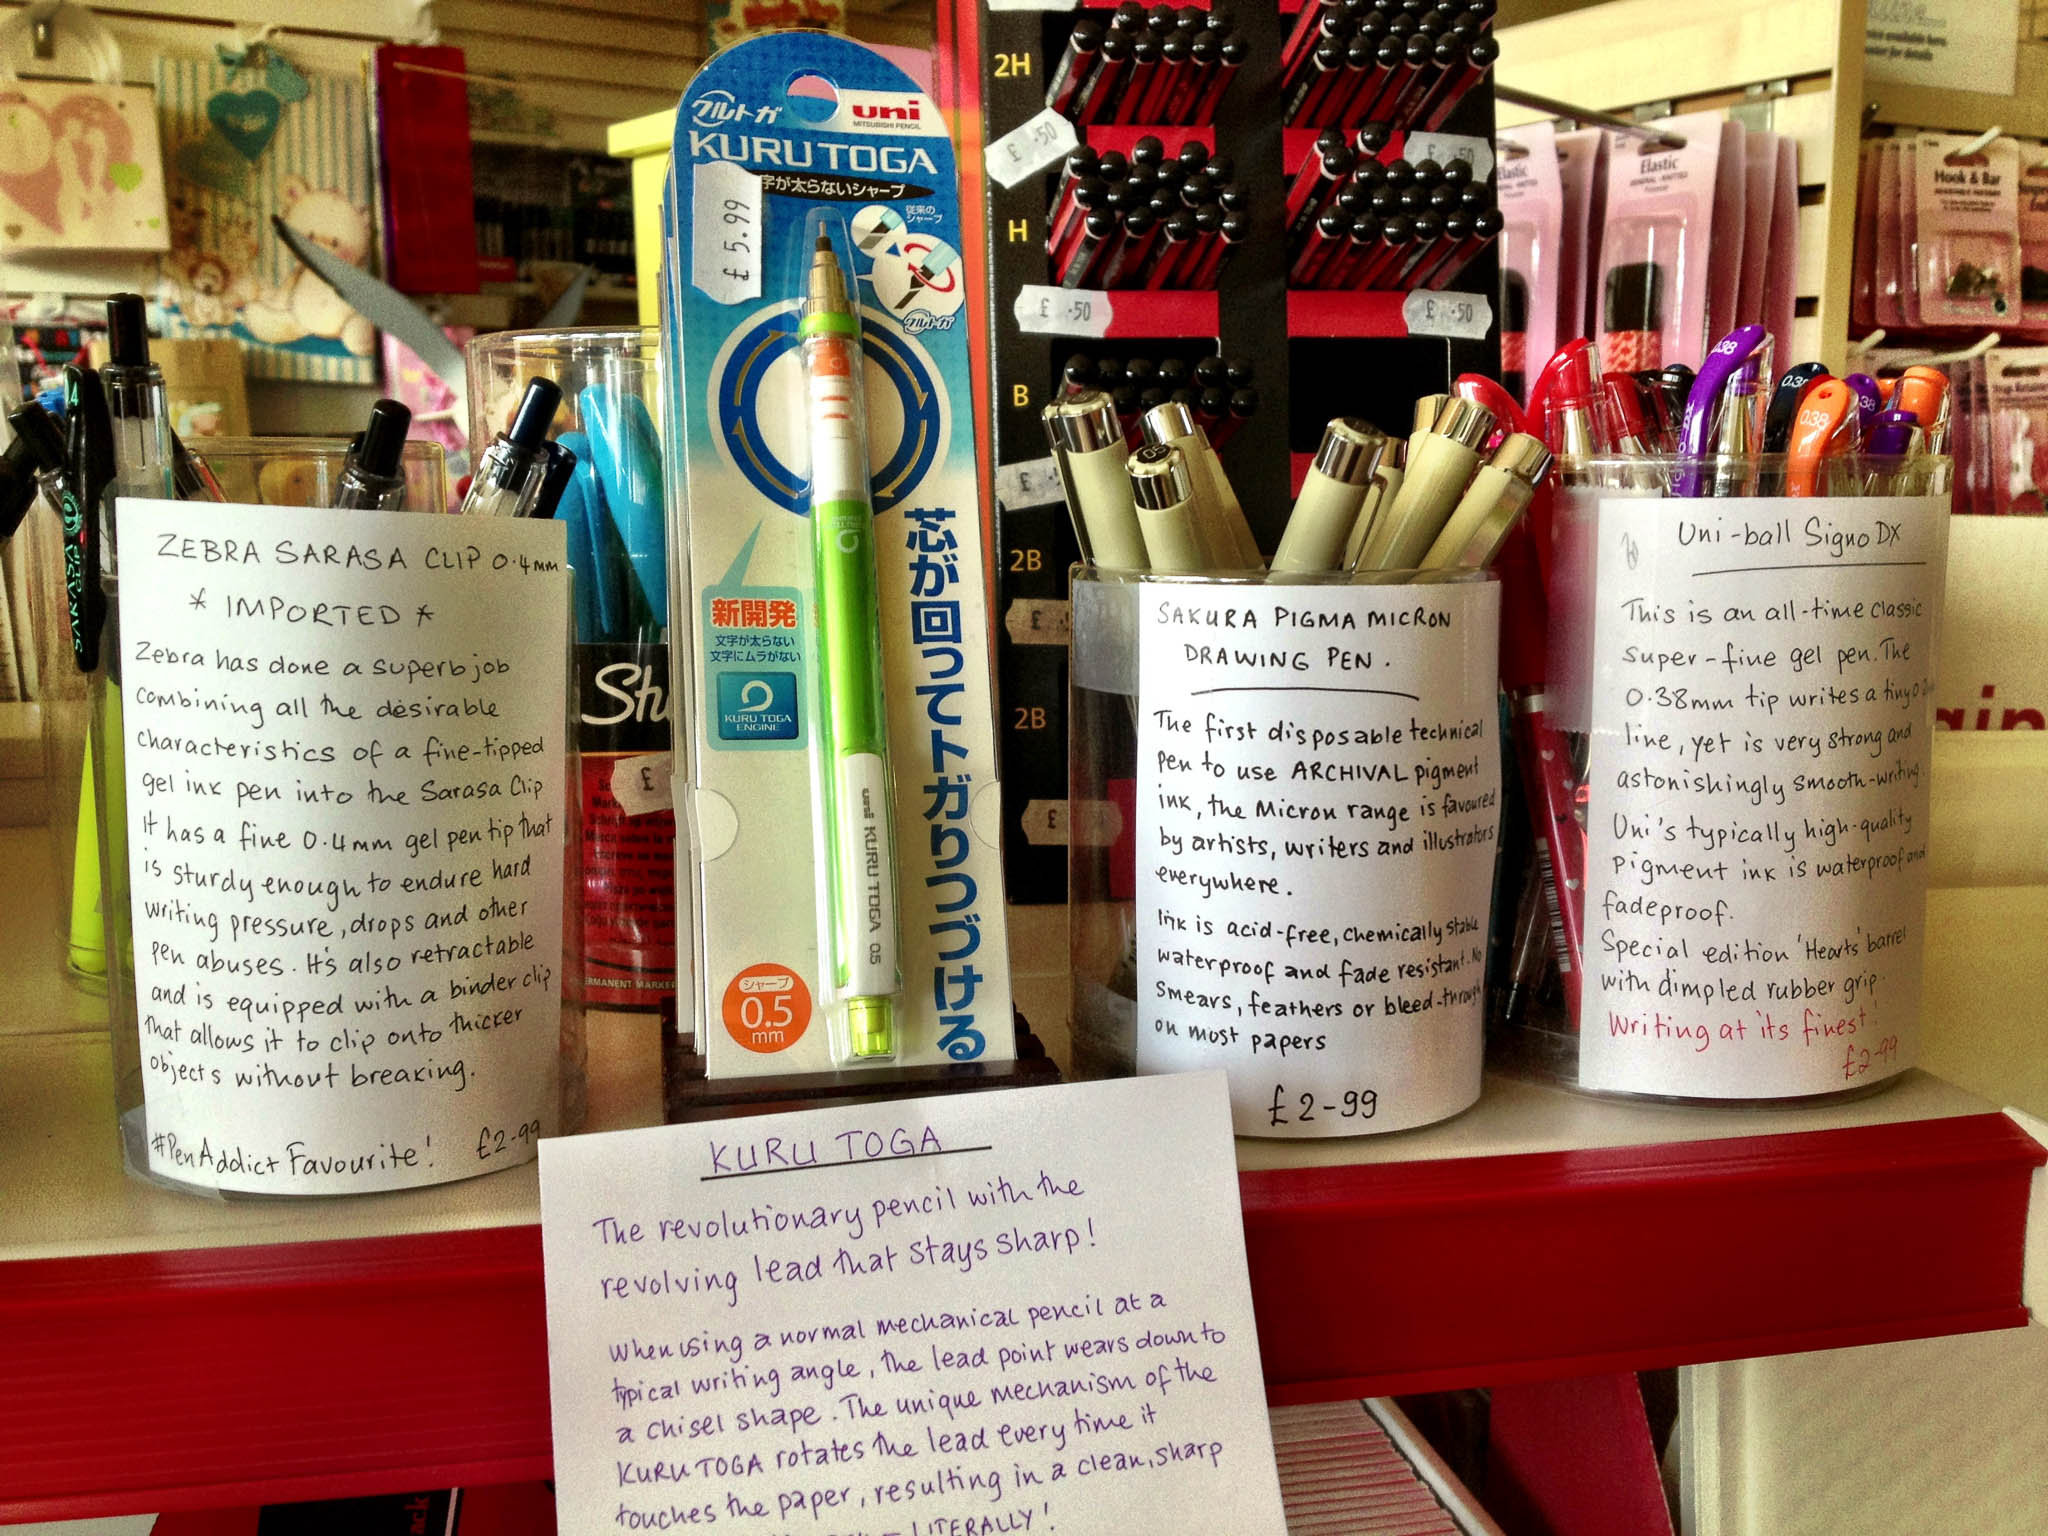 ZEBRA SARASA CLIP 0.4mm
* IMPORTED *
Zebra has done a superb job
combining all the desirable
characteristics of a fine-tipped
gel ink pen into the Sarasa Clip
It has a fine 0.4mm gel pen tip that
is sturdy enough to endure hard
writing pressure, drops and other
pen abuses. It's also retractable
and is equipped with a binder clip
that allows it to clip onto thicker
objects without breaking.
#PenAddict Favourite! £2-99
SARASA CLIP
クルトガ
uni
MITSUBISHI PENCIL
KURUTOGA
字が太らないシャープ
£5.99
従来の
シャープ
クルトガ
芯が回ってトガりつづける
新開発
文字が太らない
文字にムラがない
KURU TOGA
ENGINE
uni KURU TOGA 0.5
シャープ
0.5
mm
PERMANENT MARKER
2H
£ .50
£ .50
H
£ .50
£ .50
B
£
2B
£
2B
£
£
SAKURA PIGMA MICRON
DRAWING PEN.
The first disposable technical
pen to use ARCHIVAL pigment
ink, the Micron range is favoured
by artists, writers and illustrators
everywhere.
Ink is acid-free, chemically stable
waterproof and fade resistant. No
smears, feathers or bleed-through
on most papers
£2-99
Elastic
Elastic
Hook & Bar
0.38
0.38
Uni-ball Signo DX
This is an all-time classic
super-fine gel pen. The
0.38mm tip writes a tiny
line, yet is very strong and
astonishingly smooth-writing.
Uni's typically high-quality
pigment ink is waterproof and
fadeproof.
Special edition 'Hearts' barrel
with dimpled rubber grip.
Writing at its finest!
£2-99
KURU TOGA
The revolutionary pencil with the
revolving lead that stays sharp!
When using a normal mechanical pencil at a
typical writing angle, the lead point wears down to
a chisel shape. The unique mechanism of the
KURU TOGA rotates the lead every time it
touches the paper, resulting in a clean, sharp
LITERALLY!